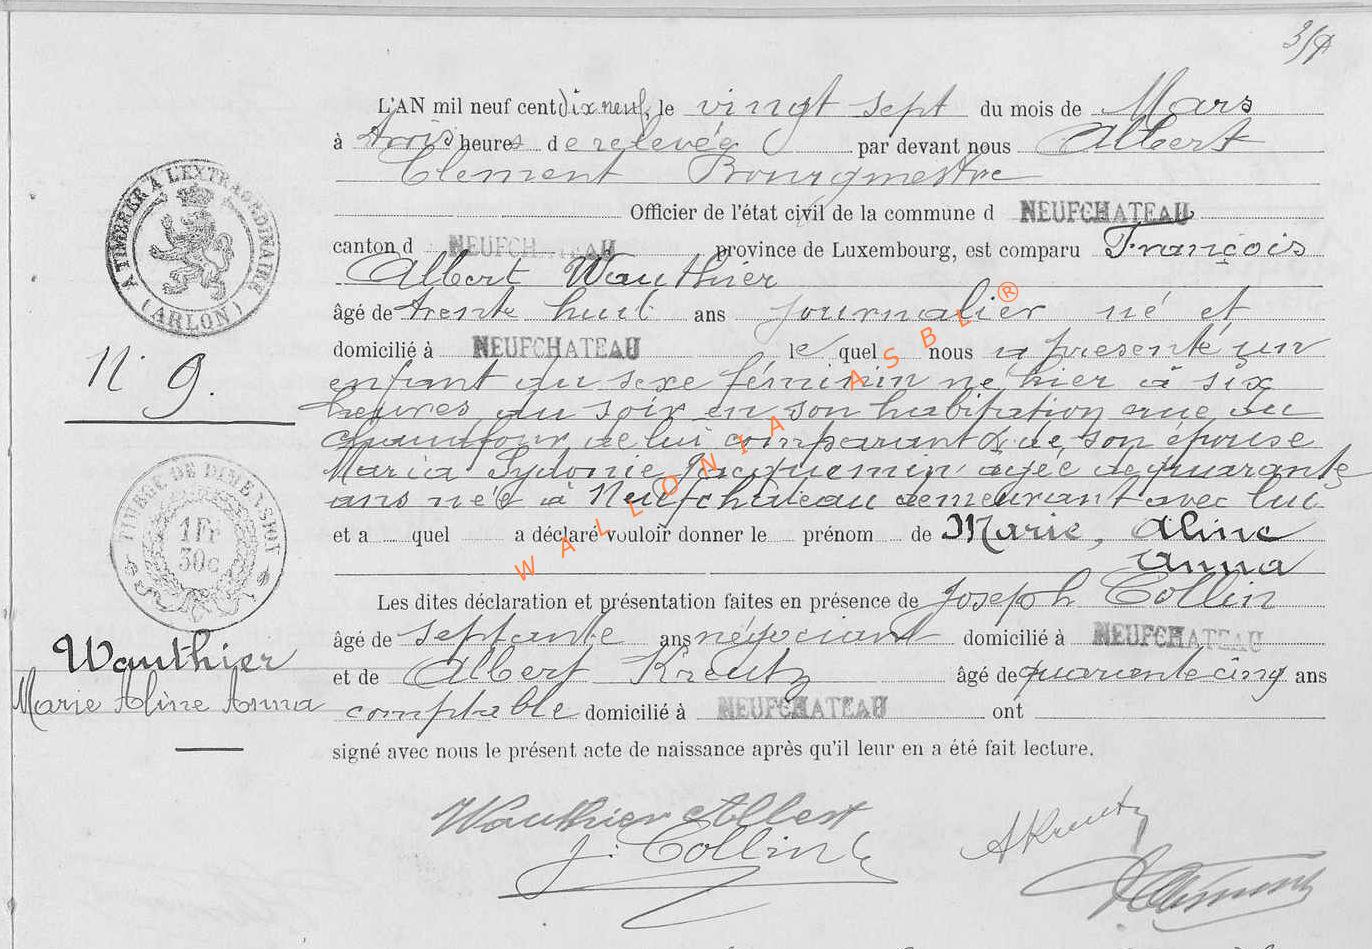 L'AN mil neuf cent dix neuf, le vingt sept du mois de Mars
à trois heures de relevée par devant nous Albert
Clement Bourgmestre
Officier de l'état civil de la commune d NEUFCHATEAU
canton d NEUFCHATEAU province de Luxembourg, est comparu François
Albert Wauthier
âgé de trente huit ans journalier né et
domicilié à NEUFCHATEAU le quel nous a présenté un
enfant du sexe féminin né hier à six
heures du soir en son habitation rue du
chaufour de lui comparant & de son épouse
Maria Sydonie Jacquemin agée de quarante
ans née à Neufchâteau demeurant avec lui
et a quel a déclaré vouloir donner le prénom de Marie, Aline
Anna
Les dites déclaration et présentation faites en présence de Joseph Collin
âgé de septante ans négociant domicilié à NEUFCHATEAU
et de Albert Kreutz âgé de quarante cinq ans
comptable domicilié à NEUFCHATEAU ont
signé avec nous le présent acte de naissance après qu'il leur en a été fait lecture.
Wauthier Albert
J. Collin
AKreutz
AClement
A TIMBRER A L'EXTRAORDINAIRE
(ARLON)
N. 9.
TIMBRE DE DIMENSION
1 Fr
30c
Wauthier
Marie Aline Anna
WALLONIA ASBL ®